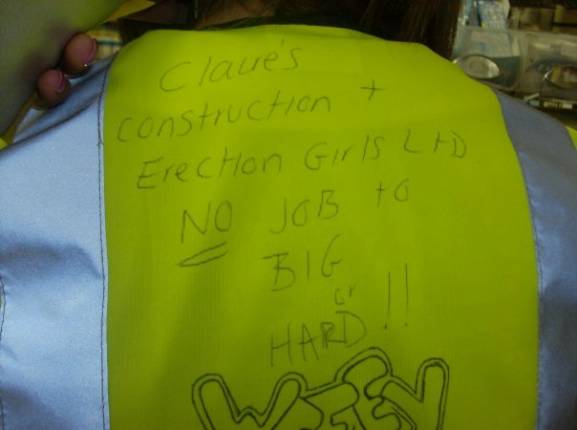 Claire's
construction +
Erection Girls LtD
NO JOB to
BIG
or
HARD!!